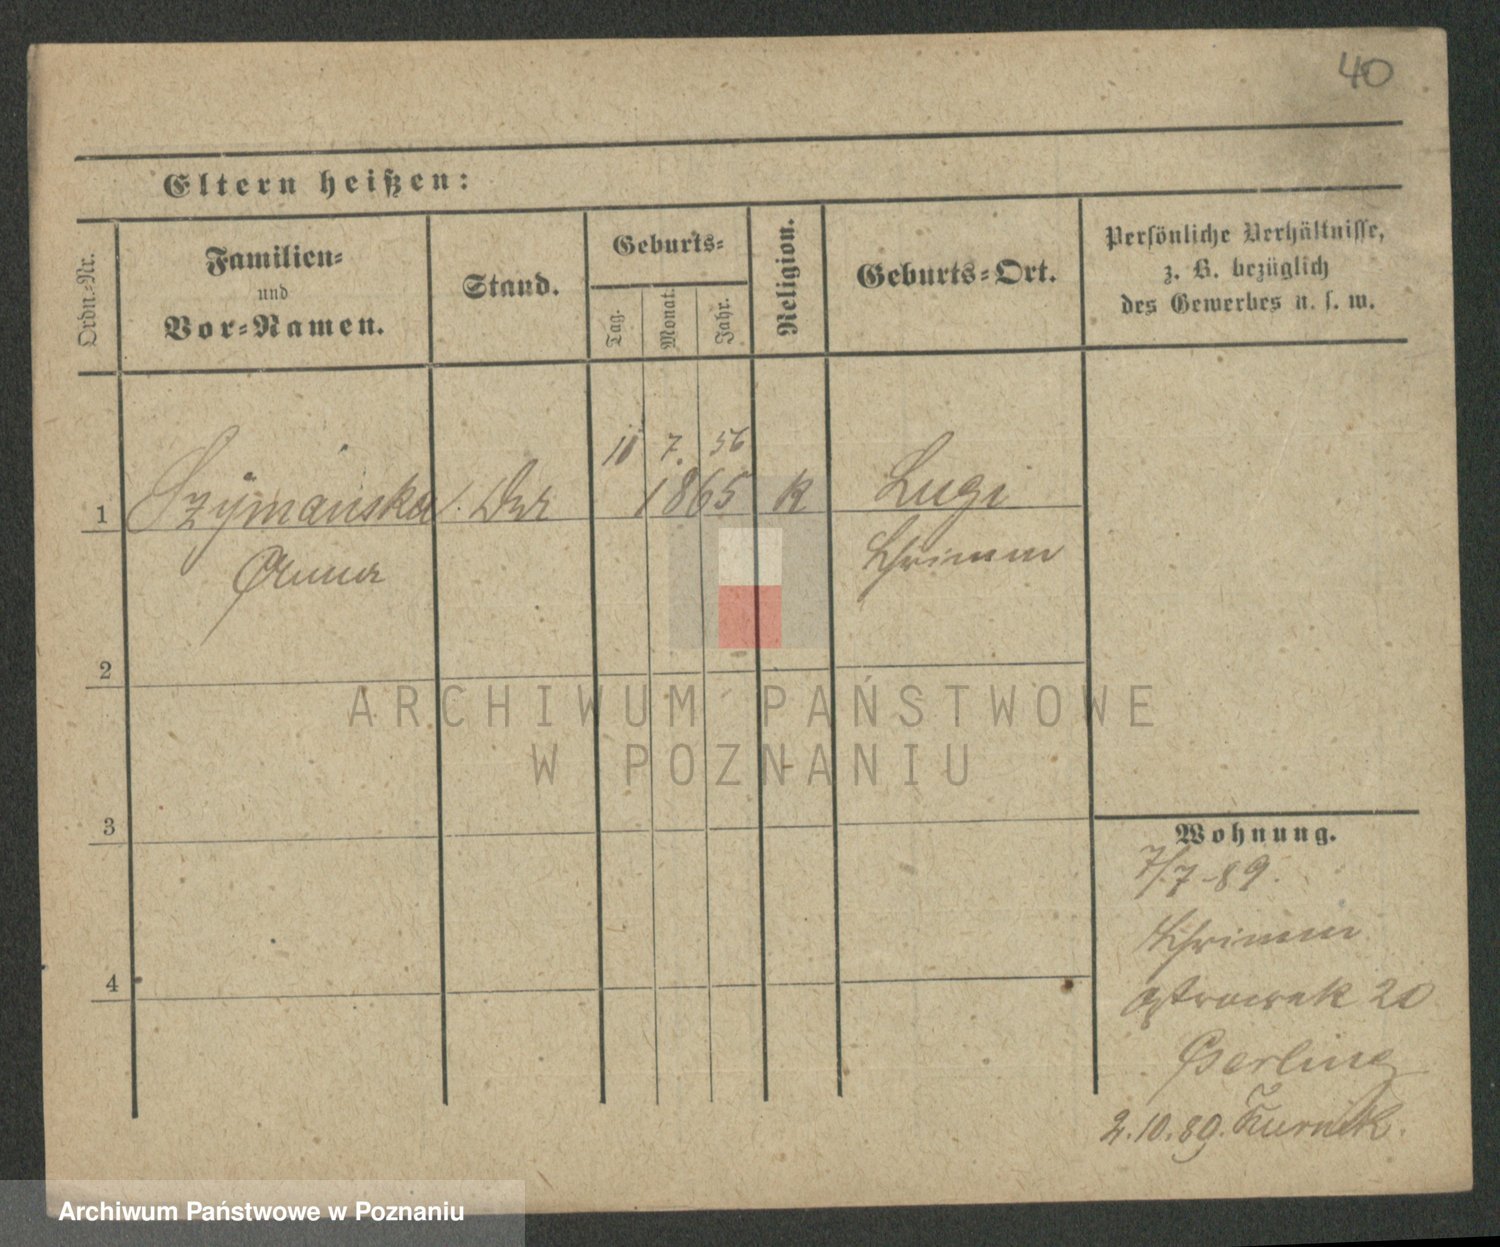 40
Eltern heißen:
Ordn.-Nr.
Familien-
und
Vor-Namen.
Stand.
Geburts-
Tag.
Monat.
Jahr.
Religion.
Geburts-Ort.
Persönliche Verhältnisse,
z. B. bezüglich
des Gewerbes u. s. w.
7. 56
1 Szymanska 1865 k Lugi
Anna Schrimm
2
3
4
Wohnung.
7/7-89.
Schrimm
Ostrowek 20
2.10.89. Kurnik.
ARCHIWUM PAŃSTWOWE
W POZNANIU
Archiwum Państwowe w Poznaniu